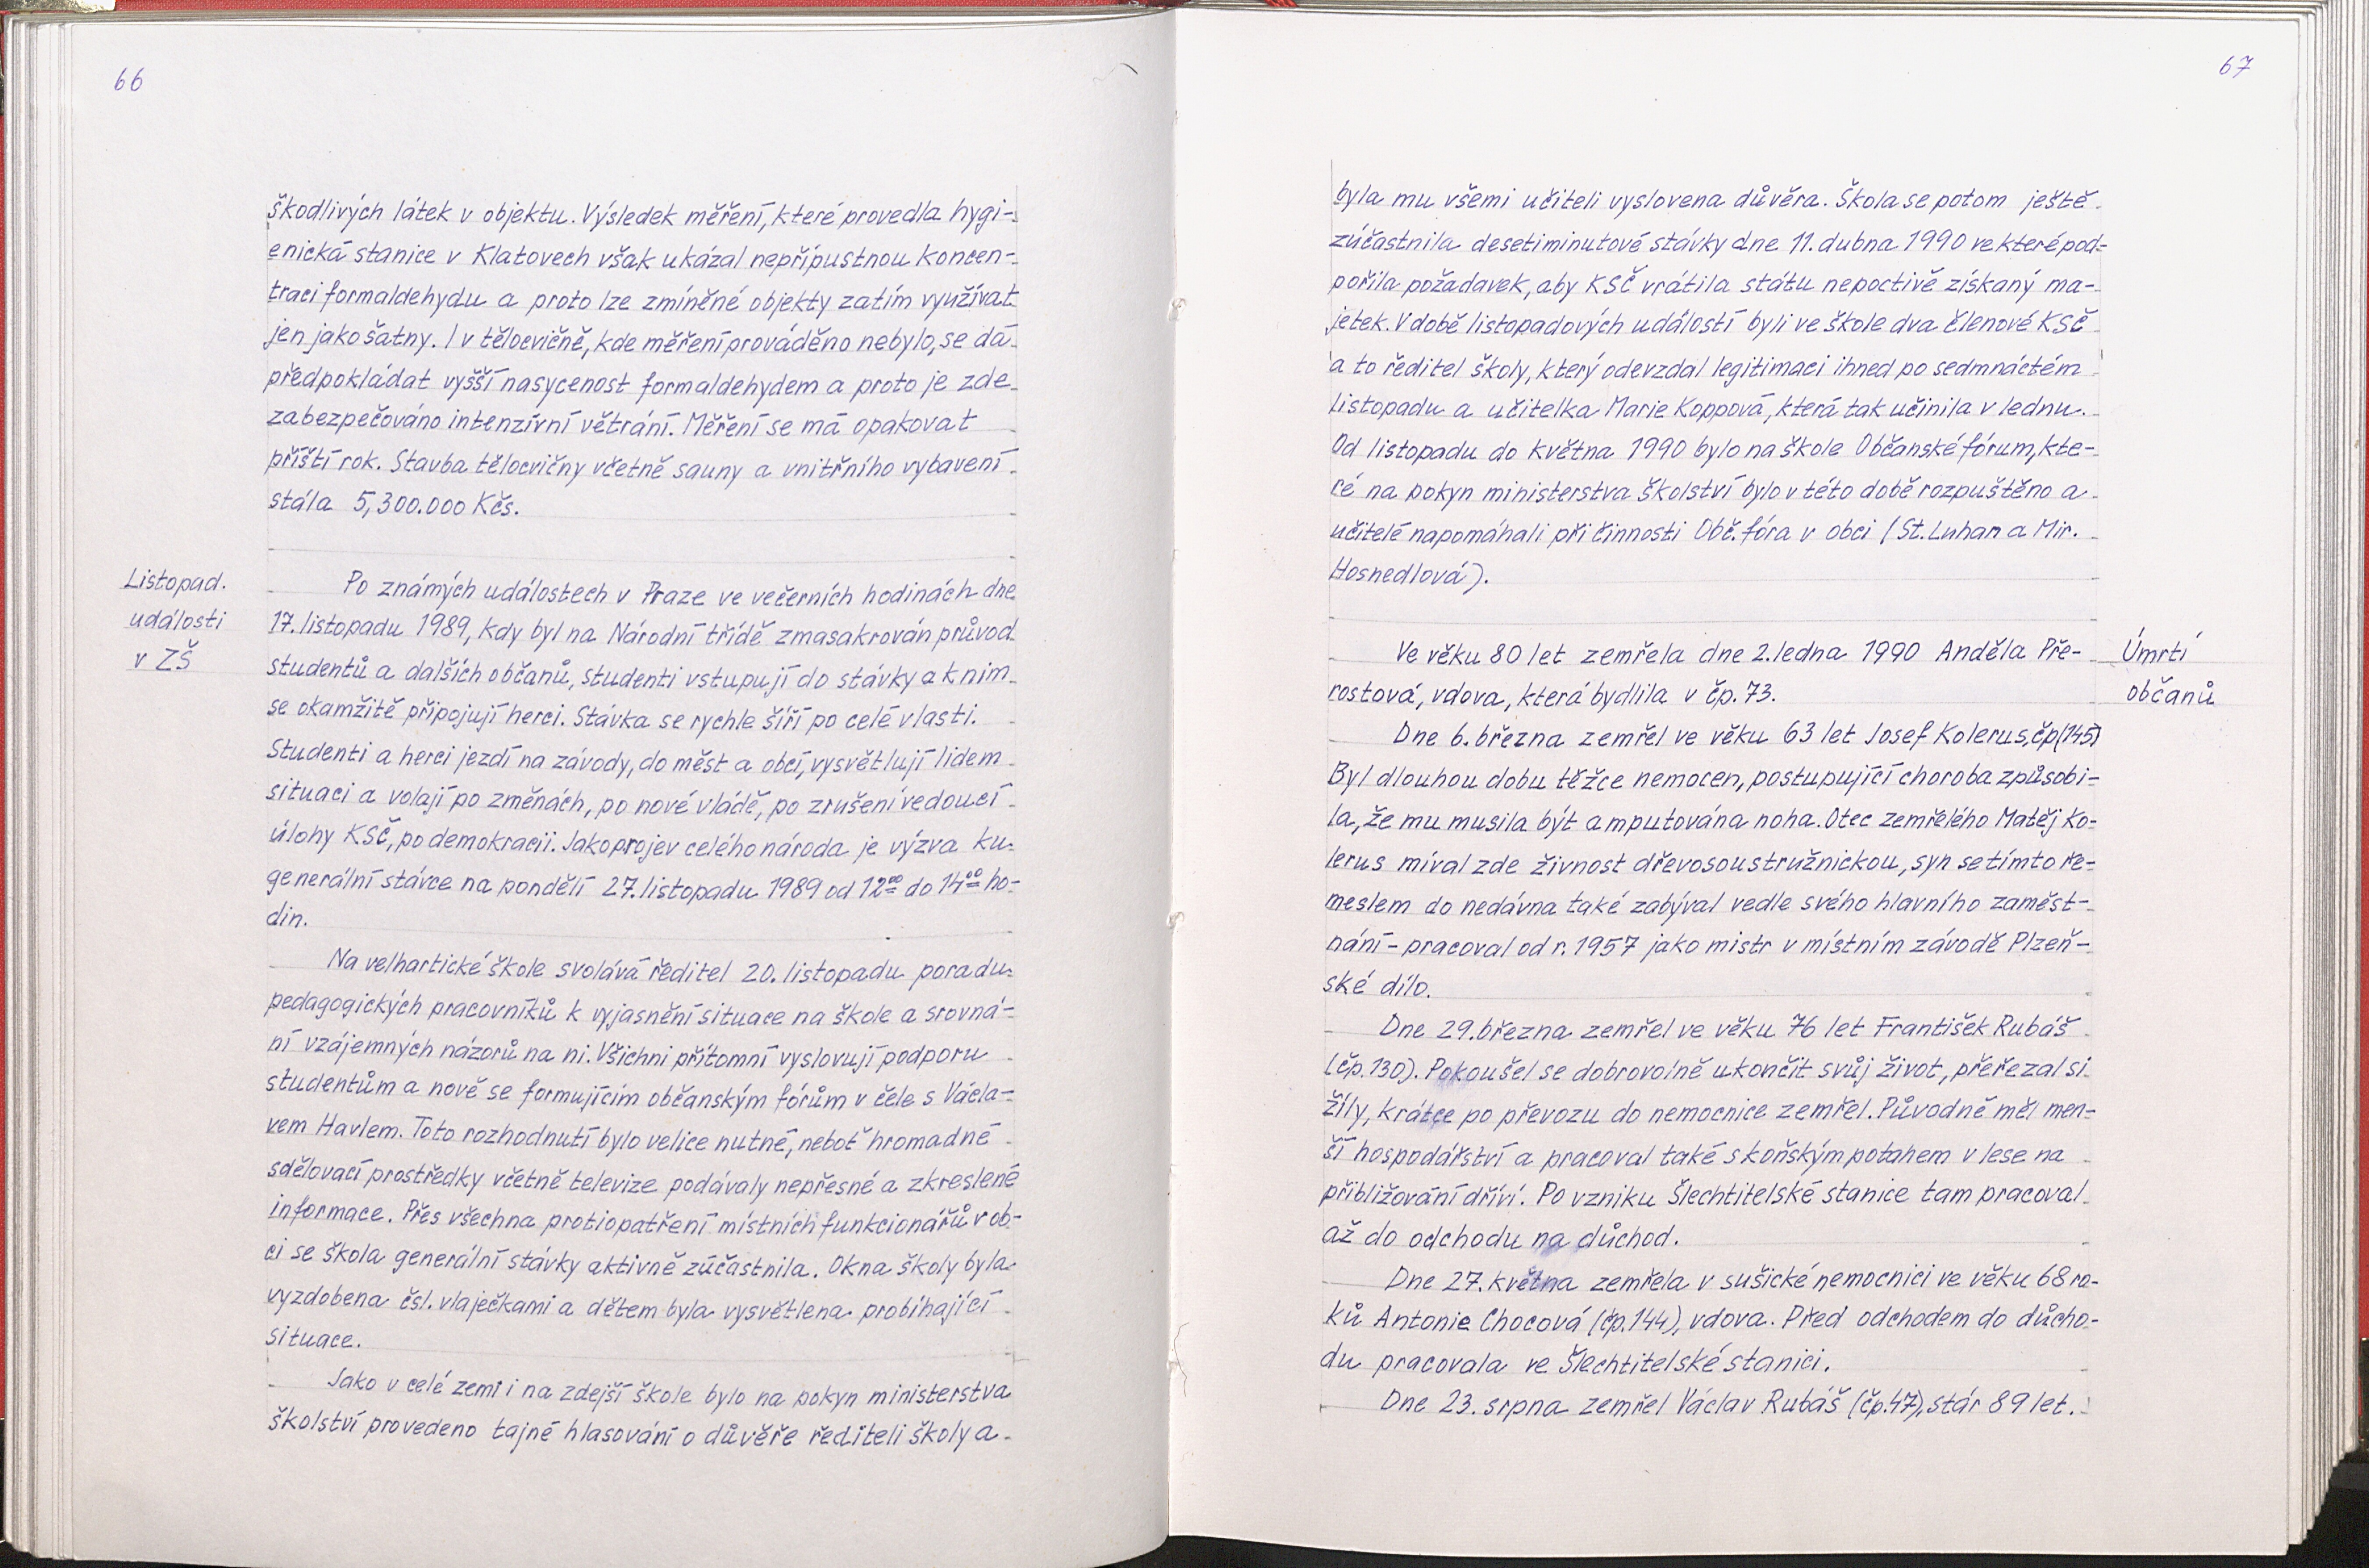 66
škodlivých látek v objektu. Výsledek měření, které provedla hygi-
enická stanice v Klatovech však ukázal nepřípustnou koncen-
traci formaldehydu a proto lze zmíněné objekty zatím využívat
jen jako šatny. I v tělocvičně, kde měření prováděno nebylo, se dá
předpokládat vyšší nasycenost formaldehydem a proto je zde
zabezpečováno intenzívní větrání. Měření se má opakovat
příští rok. Stavba tělocvičny včetně sauny a vnitřního vybavení
stála 5,300.000 Kčs.
Listopad.
události
v ZŠ
Po známých událostech v Praze ve večerních hodinách dne
17. listopadu 1989, kdy byl na Národní třídě zmasakrován průvod
studentů a dalších občanů, studenti vstupují do stávky a k nim
se okamžitě připojují herci. Stávka se rychle šíří po celé vlasti.
Studenti a herci jezdí na závody, do měst a obcí, vysvětlují lidem
situaci a volají po změnách, po nové vládě, po zrušení vedoucí
úlohy KSČ, po demokracii. Jako projev celého národa je výzva ku
generální stávce na pondělí 27. listopadu 1989 od 12⁰⁰ do 14⁰⁰ ho-
din.
Na velhartické škole svolává ředitel 20. listopadu poradu
pedagogických pracovníků k vyjasnění situace na škole a srovná-
ní vzájemných názorů na ni. Všichni přítomní vyslovují podporu
studentům a nově se formujícím občanským fórům v čele s Václa-
vem Havlem. Toto rozhodnutí bylo velice nutné, neboť hromadné
sdělovací prostředky včetně televize podávaly nepřesné a zkreslené
informace. Přes všechna protiopatření místních funkcionářů v ob-
ci se škola generální stávky aktivně zúčastnila. Okna školy byla
vyzdobena čsl. vlaječkami a dětem byla vysvětlena probíhající
situace.
Jako v celé zemi i na zdejší škole bylo na pokyn ministerstva
školství provedeno tajné hlasování o důvěře řediteli školy a
67
byla mu všemi učiteli vyslovena důvěra. Škola se potom ještě
zúčastnila desetiminutové stávky dne 11. dubna 1990 ve které pod-
pořila požadavek, aby KSČ vrátila státu nepoctivě získaný ma-
jetek. V době listopadových událostí byli ve škole dva členové KSČ
a to ředitel školy, který odevzdal legitimaci ihned po sedmnáctém
listopadu a učitelka Marie Koppová, která tak učinila v lednu.
Od listopadu do května 1990 bylo na škole Občanské fórum, kte-
ré na pokyn ministerstva školství bylo v této době rozpuštěno a
učitelé napomáhali při činnosti Obč. fóra v obci (St. Luhan a Mir.
Hosnedlová).
Úmrtí
občanů
Ve věku 80 let zemřela dne 2. ledna 1990 Anděla Pře-
rostová, vdova, která bydlila v čp. 73.
Dne 6. března zemřel ve věku 63 let Josef Kolerus, čp(145)
Byl dlouhou dobu těžce nemocen, postupující choroba způsobi-
la, že mu musila být amputována noha. Otec zemřelého Matěj Ko-
lerus míval zde živnost dřevosoustružnickou, syn se tímto ře-
meslem do nedávna také zabýval vedle svého hlavního zaměst-
nání - pracoval od r. 1957 jako mistr v místním závodě Plzeň-
ské dílo.
Dne 29. března zemřel ve věku 76 let František Rubáš
(čp. 130). Pokoušel se dobrovolně ukončit svůj život, přeřezal si
žíly, krátce po převozu do nemocnice zemřel. Původně měl men-
ší hospodářství a pracoval také s koňským potahem v lese na
přibližování dříví. Po vzniku Šlechtitelské stanice tam pracoval
až do odchodu na důchod.
Dne 27. května zemřela v sušické nemocnici ve věku 68 ro-
ků Antonie Chocová (čp. 144), vdova. Před odchodem do důcho-
du pracovala ve Šlechtitelské stanici.
Dne 23. srpna zemřel Václav Rubáš (čp. 47), stár 89 let.